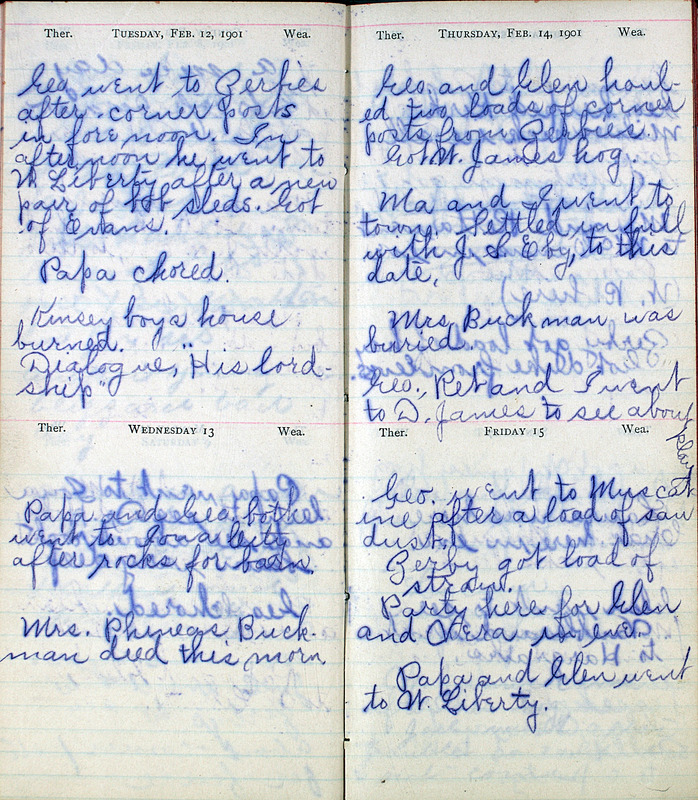 Ther. TUESDAY, FEB. 12, 1901 Wea.
Geo went to Zerbies
after corner posts
in fore noon. In
afternoon he went to
W Liberty after a new
pair of bob sleds. Got
of Evans.
Papa chored.
Kinsey boys house
burned.
Dialogue, "His lord-
ship"
Ther. WEDNESDAY 13 Wea.
Papa and Geo both
went to Iowa City
after rocks for barn.
Mrs. Phineas Buck-
man died this morn
Ther. THURSDAY, FEB. 14, 1901 Wea.
Geo. and Glen haul-
ed two loads of corner
posts from Zerbies.
Got W. James hog.
Ma and I went to
town. Settled in full
with J. S. Eby, to this
date.
Mrs. Buckman was
buried.
Geo., Ret and I went
to D. James to see about
play
Ther. FRIDAY 15 Wea.
Geo. went to Muscat
ine after a load of saw
dust.
Zerby got load of
straw.
Party here for Glen
and Vera in eve.
Papa and Glen went
to W. Liberty.